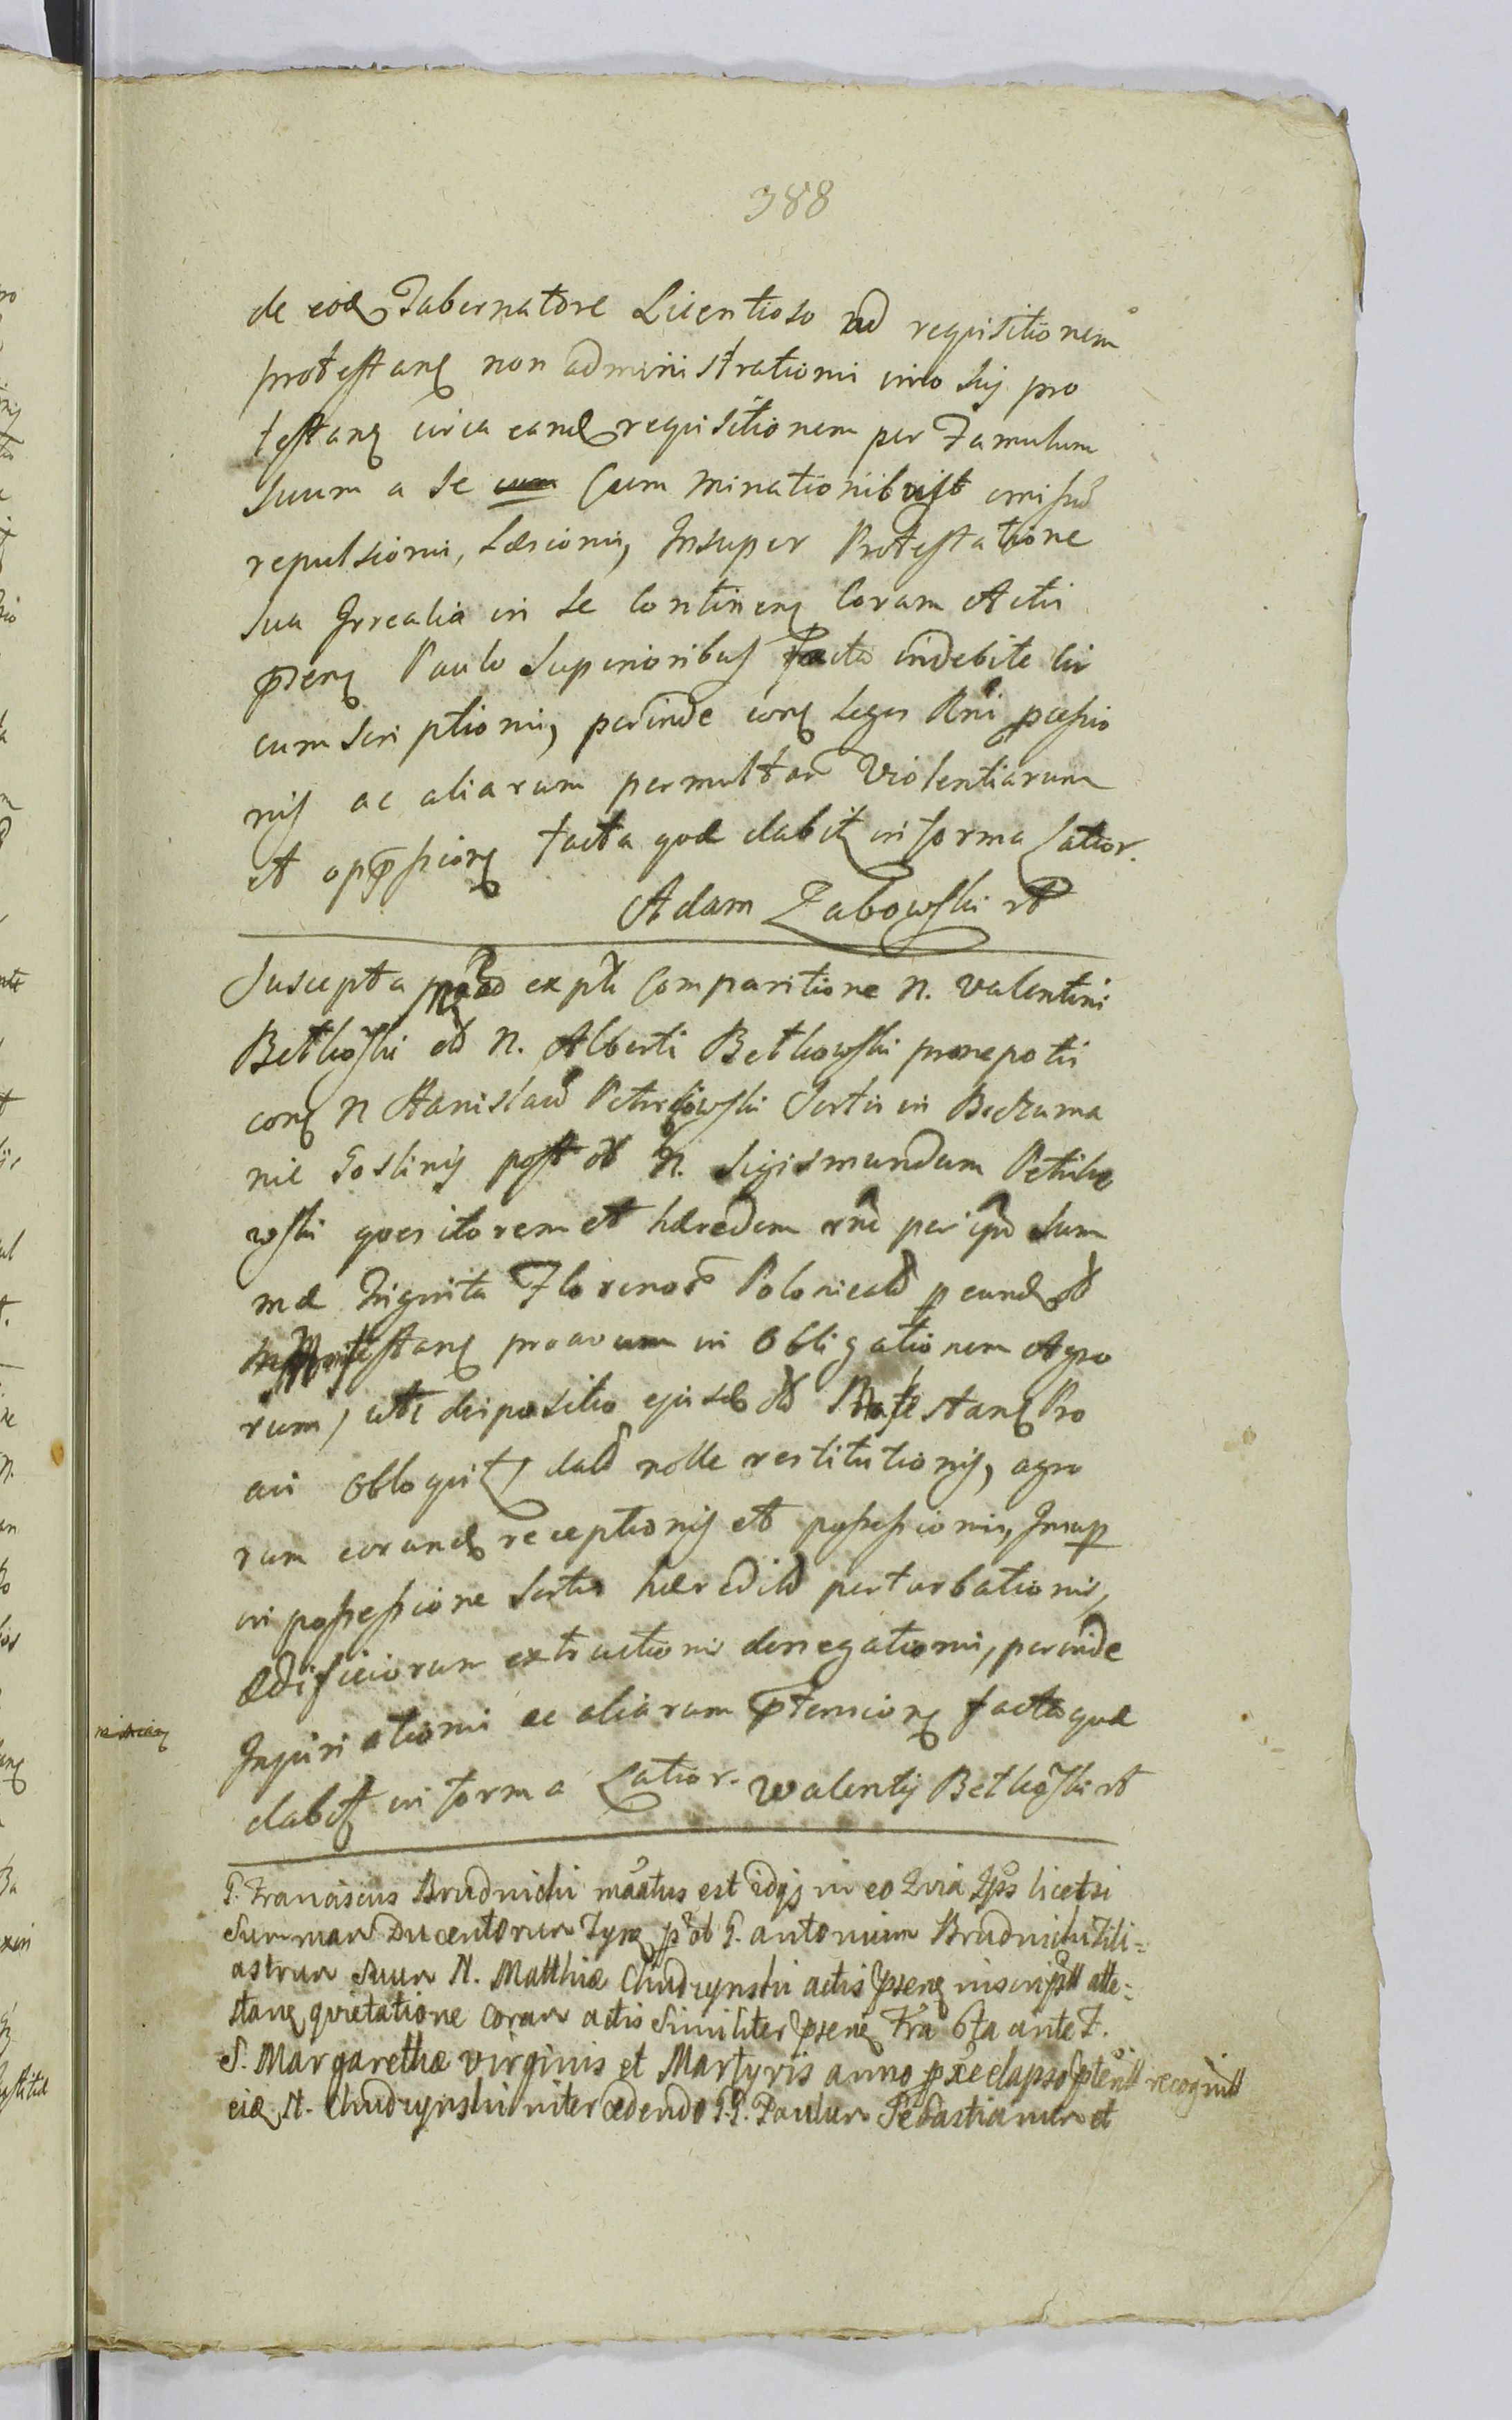 388
de eod Tabernatore Licentioso ad requisitionem
protestanq non administrationis imo sui pro
testanq circa eand requisitionem per Famulum
suum a se cum Cum minationibus
repulsionis, Læsionis, Insuper Protestatione
sua Irrealia in se Continenq Coram Actis
pntq Paulo Superioribus facta indebite cir
cumscriptionis, perinde conq Leges Rni
nis ac aliarum permultar Violentiarum
et opprssionq facta quæ dabit in forma Latior.
Adam Zabowski
Suscepta ex pte Comparitione N. Valentini
Betkoski N. Alberti Betkowski pronepotis
conq N Stanislaum Sortis in Boczuma
nie Goslinis post N. Sigismundum Petriko
wski quesitorem et hæredem rne per Sum
mæ triginta Florenor Polonical p eund
proavum in Obligationem Agro
rum, uti dispositio ejusd Protestanq Pro
avi Obloquit, dato nolle restitutionis, agro
rum eorund receptionis et possessionis, Insup
in possessione Sortis hæredit perturbationis,
Ædificiorum extructionis denegationis, perinde
Injuriationis ac aliarum ptensionq facta quæ
dabit in forma Latior. Walenty Betkoski
G. Franciscus Brudnicki mãatus est idq in eo Quia Ips licet si
Summam Ducentorum Tynq p ol G. antonium Brudnicki Fili=
astrum Suum N. Matthiæ Chudzynski actis psenq inscriptt atte=
stanq quietatione coram actis Similiter psenq Fra 6ta ante F.
S. Margarethæ virginis et Martyris anno pxe elapso recognitt
eid N. Chudzynski intercedendo G.G. Paulum Sebastianum et